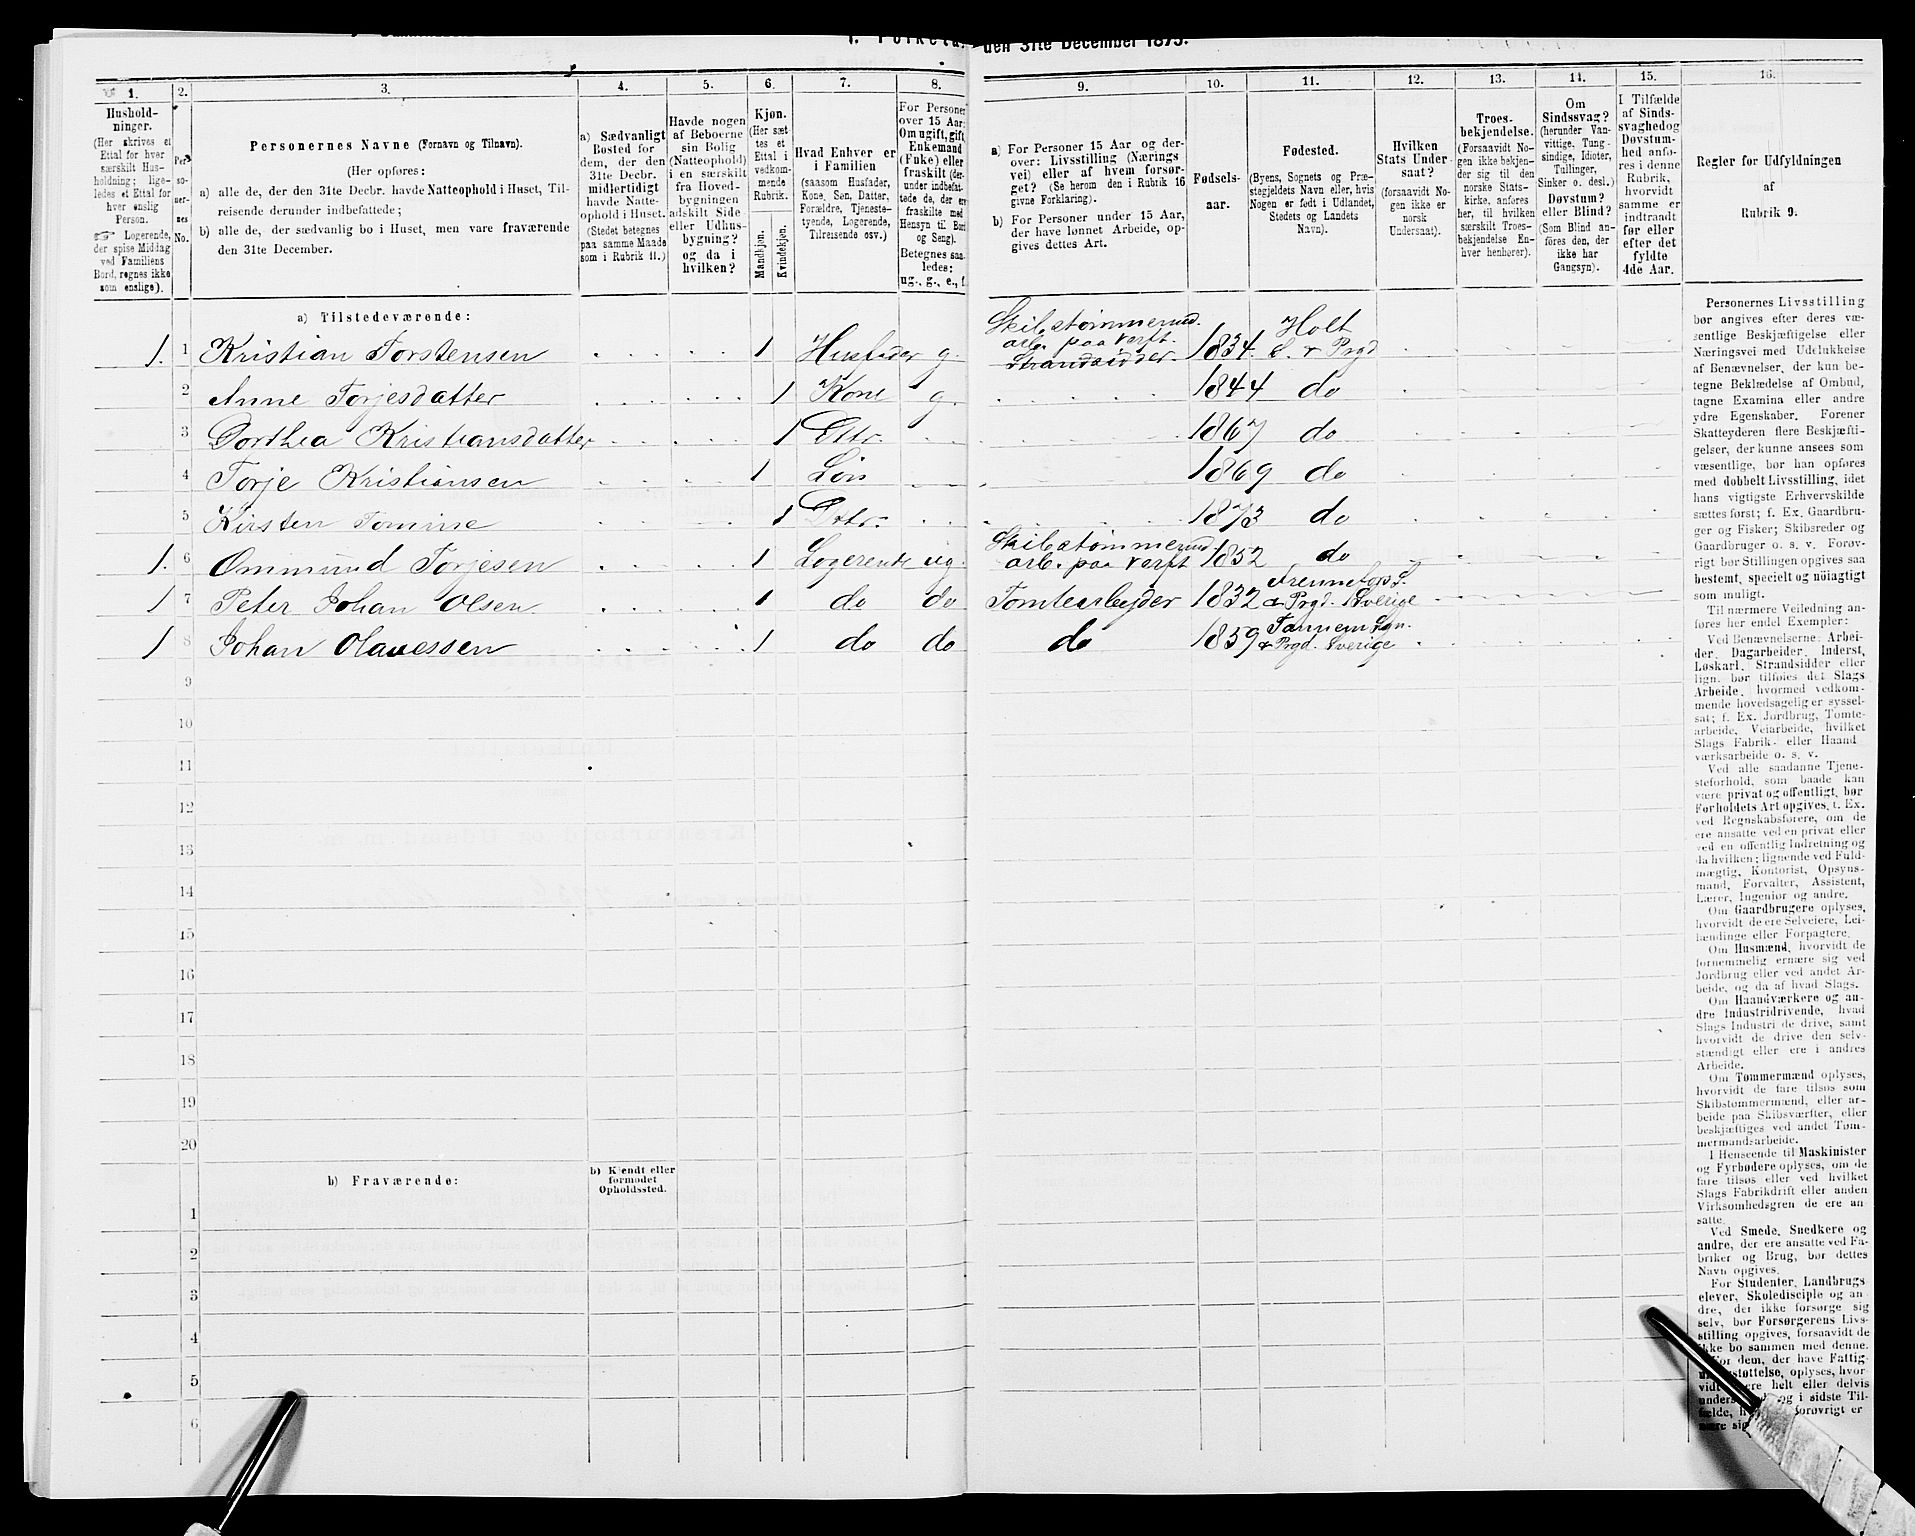 den 31te December 1875.
1. 2. 3. 4. 5. 6. 7. 8. 9. 10. 11. 12. 13. 14. 15. 16.
Hushold-
ninger.
(Her skrives et
Ettal for hver
særskilt Hus-
holdning; lige-
ledes et Ettal for
hver enslig
Person.
☞ Logerende,
der spise Middag
ved Familiens
Bord, regnes ikke
som enslige).
Per-
so-
ner-
nes
No.
Personernes Navne (Fornavn og Tilnavn).
(Her opføres:
a) alle de, der den 31te Decbr. havde Natteophold i Huset, Til-
reisende derunder indbefattede;
b) alle de, der sædvanlig bo i Huset, men vare fraværende
den 31te December.
a) Sædvanligt
Bosted for
dem, der den
31te Decbr.
midlertidigt
havde Natte-
ophold i Huset.
(Stedet betegnes
paa samme Maade
som i Rubrik 11.)
Havde nogen
af Beboerne
sin Bolig
(Natteophold)
i en særskilt
fra Hoved-
bygningen
adskilt Side-
eller Udhus-
bygning?
og da i
hvilken?
Kjøn.
(Her sæt-
tes et
Ettal i
vedkom-
mende
Rubrik.
Mandkjøn.
Kvindekjøn.
Hvad Enhver er
i Familien
(saasom Husfader,
Kone, Søn, Datter,
Forældre, Tjeneste-
tyende, Logerende,
Tilreisende osv.)
For Personer
over 15 Aar:
Om ugift, gift,
Enkemand
(Enke) eller
fraskilt (der-
under indbefat-
tede de, der ere
fraskilte med
Hensyn til Bord
og Seng).
Betegnes saa-
ledes:
ug., g., e., f.
a) For Personer 15 Aar og der-
over: Livsstilling (Nærings-
vei) eller af hvem forsør-
get? (Se herom den i Rubrik 16
givne Forklaring).
b) For Personer under 15 Aar,
der have lønnet Arbeide, op-
gives dettes Art.
Fødsels-
aar.
Fødested.
(Byens, Sognets og Præ-
stegjeldets Navn eller, hvis
Nogen er født i Udlandet,
Stedets og Landets
Navn).
Hvilken
Stats Under-
saat?
(forsaavidt No-
gen ikke er
norsk
Undersaat).
Troes-
bekjendelse.
(Forsaavidt No-
gen ikke bekjen-
der sig til den
norske Stats-
kirke, anføres
her, til hvilken
særskilt Troes-
bekjendelse En-
hver henhører).
Om
Sindssvag?
(herunder Van-
vittige, Tung-
sindige, Idioter,
Tullinger,
Sinker o. desl.)
Døvstum?
eller Blind?
(Som Blind an-
føres den, der
ikke har
Gangsyn).
I Tilfælde
af Sinds-
svaghed og
Døvstum-
hed anfø-
res i denne
Rubrik,
hvorvidt
samme er
indtraadt
før eller
efter det
fyldte
4de Aar.
Regler for Udfyldningen
af
Rubrik 9.
a) Tilstedeværende:
1. 1 Kristian Torstensen 1 Husfader g. Skibstømmermd. arb. paa Verft. Strandsidder 1834 Holt S. & Prgd
2 Anne Torjesdatter 1 Kone g. 1844 do
3 Dorthea Kristiansdatter 1 Dttr. 1867 do
4 Torje Kristiansen 1 Søn 1869 do
5 Kirsten Tomine 1 Dttr. 1873 do
1. 6 Ommund Torjesen 1 Logerende ug. Skibstømmermd. arb. paa Verft 1852 do
1 7 Peter Johan Olsen 1 do do Tomtearbejder 1832 & Prgd. Sverige
1 8 Johan Olavessen 1 do do do 1859 & Prgd. Sverige
9
10
11
12
13
14
15
16
17
18
19
20
b) Fraværende:
b) Kjendt eller
formodet
Opholdssted.
1
2
3
4
5
6
Personernes Livsstilling
bør angives efter deres væ-
sentlige Beskjæftigelse eller
Næringsvei med Udelukkelse
af Benævnelser, der kun be-
tegne Beklædelse af Ombud,
tagne Examina eller andre
ydre Egenskaber. Forener
Skatteyderen flere Beskjæfti-
gelser, der kunne ansees som
væsentlige, bør han opføres
med dobbelt Livsstilling, idet
hans vigtigste Erhvervskilde
sættes først; f. Ex. Gaardbru-
ger og Fisker; Skibsreder og
Gaardbruger o. s. v. Forøv-
rigt bør Stillingen opgives saa
bestemt, specielt og nøiagtigt
som muligt.
Til nærmere Veiledning an-
føres her endel Exempler:
Ved Benævnelserne: Arbei-
der, Dagarbeider, Inderst,
Løskarl, Strandsidder eller
lign. bør tilføies det Slags
Arbeide, hvormed vedkom-
mende hovedsagelig er syssel-
sat; f. Ex. Jordbrug, Tomte-
arbeide, Veiarbeide, hvilket
Slags Fabrik- eller Haand-
værksarbeide o. s. v.
Ved alle saadanne Tjene-
steforhold, som baade kan
være privat og offentligt, bør
Forholdets Art opgives, t. Ex.
ved Regnskabsførere, om de
ere ansatte ved en privat eller
ved en offentlig Indretning og
da hvilken; lignende ved Fuld-
mægtig, Kontorist, Opsyns-
mand, Forvalter, Assistent,
Lærer, Ingeniør og andre.
Om Gaardbrugere oplyses,
hvorvidt de ere Selveiere, Lei-
lændinge eller Forpagtere.
Om Husmænd, hvorvidt de
fornemmelig ernære sig ved
Jordbrug eller ved andet Ar-
beide, og da af hvad Slags.
Om Haandværkere og an-
dre Industridrivende, hvad
Slags Industri de drive, samt
hvorvidt de drive den selv-
stændigt eller ere i andres
Arbeide.
Om Tømmermænd oplyses,
hvorvidt de fare tilsøs som
Skibstømmermænd, eller ar-
beide paa Skibsværfter, eller
beskjæftiges ved andet Tøm-
mermandsarbeide.
I Henseende til Maskinister
og Fyrbødere oplyses, om de
fare tilsøs eller ved hvilket
Slags Fabrikdrift eller anden
Virksomhedsgren de ere an-
satte.
Ved Smede, Snedkere og
andre, der ere ansatte ved Fa-
briker og Brug, bør dettes
Navn opgives.
For Studenter, Landbrugs-
elever, Skoledisciple og an-
dre, der ikke forsørge sig
selv, bør Forsørgerens Livs-
stilling opgives, forsaavidt de
ikke bo sammen med denne.
For dem, der have Fattig-
understøttelse, oplyses, hvor-
vidt de ere helt eller delvis
og i sidste Til-
fælde, forøvrigt er